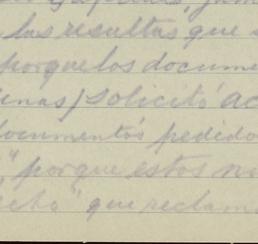 las resultas que
porque los docume
enas) solicitó ac
documentos pedido
" porque estos no
echo" que reclam